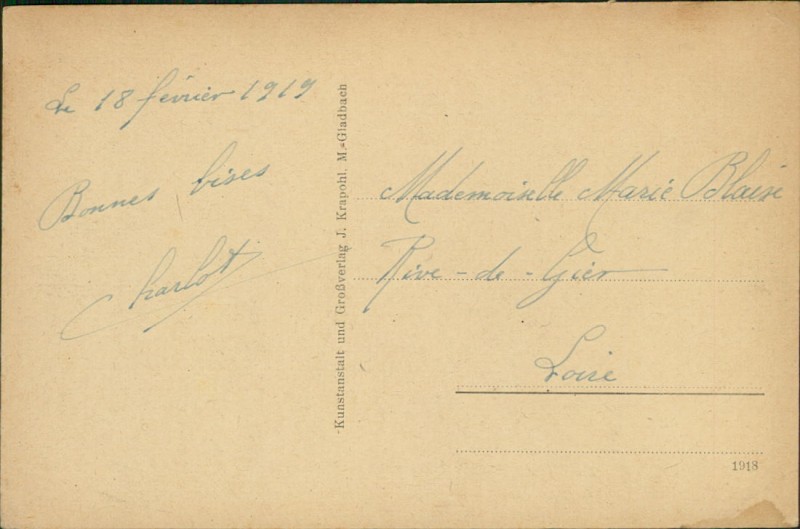 Le 18 février 1919
Bonnes bises
Charlot
Kunstanstalt und Großverlag J. Krapohl. M.-Gladbach
Mademoiselle Marie Blaise
Rive-de-Gier
Loire
1918